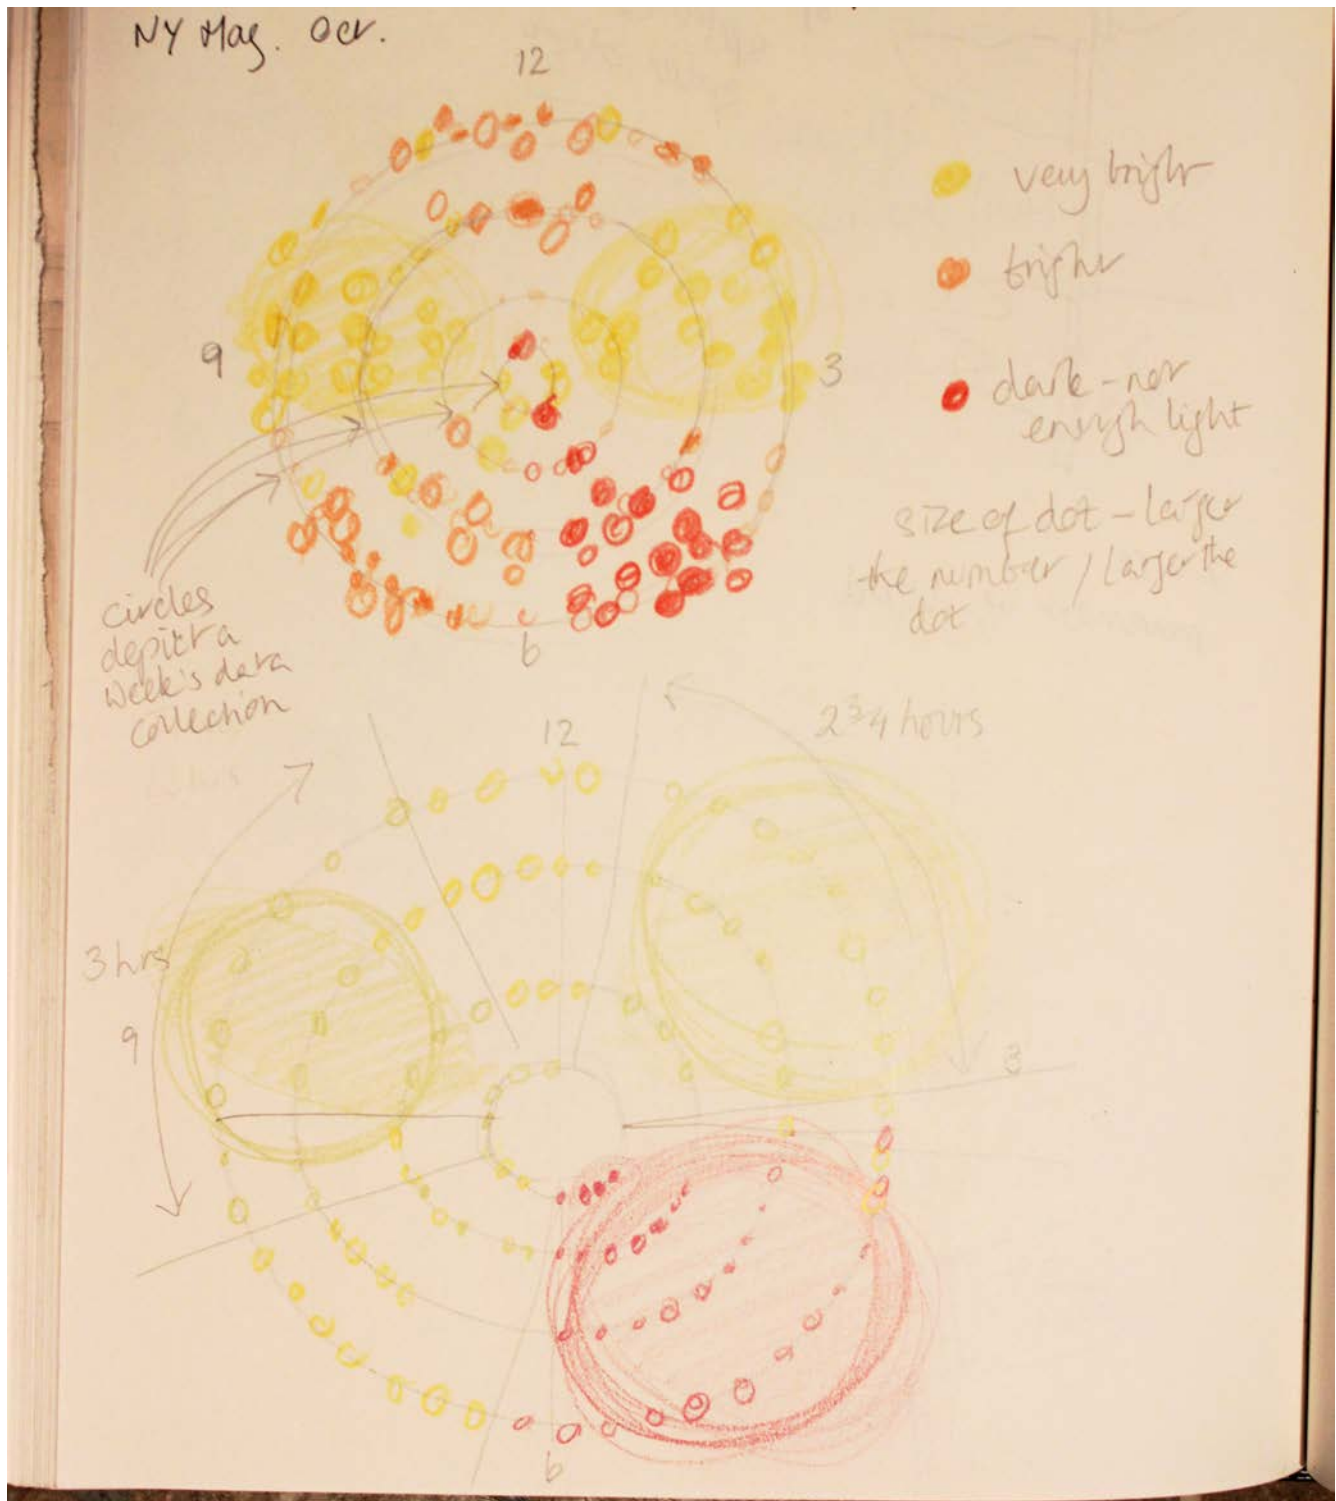 NY Mag. Oct.
12
very bright
bright
9
3
dark - not
enough light
size of dot - larger
the number / larger the
dot
circles
depict a
week's data
collection
6
12
2 3/4 hours
3 hrs
9
3
6